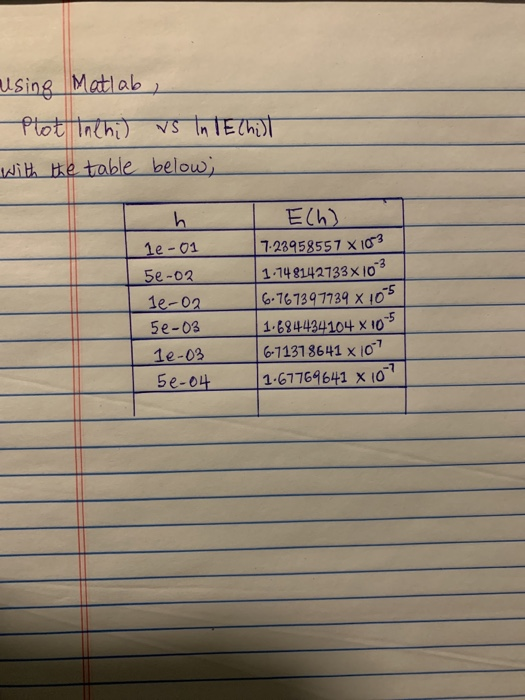 Using Matlab,
Plot ln(hi) vs ln|E(hi)|
with the table below;
h E(h)
1e-01 7.23958557 × 10^-3
5e-02 1.748142733 × 10^-3
1e-02 6.767397739 × 10^-5
5e-03 1.684434104 × 10^-5
1e-03 6.71378641 × 10^-7
5e-04 1.67769641 × 10^-7